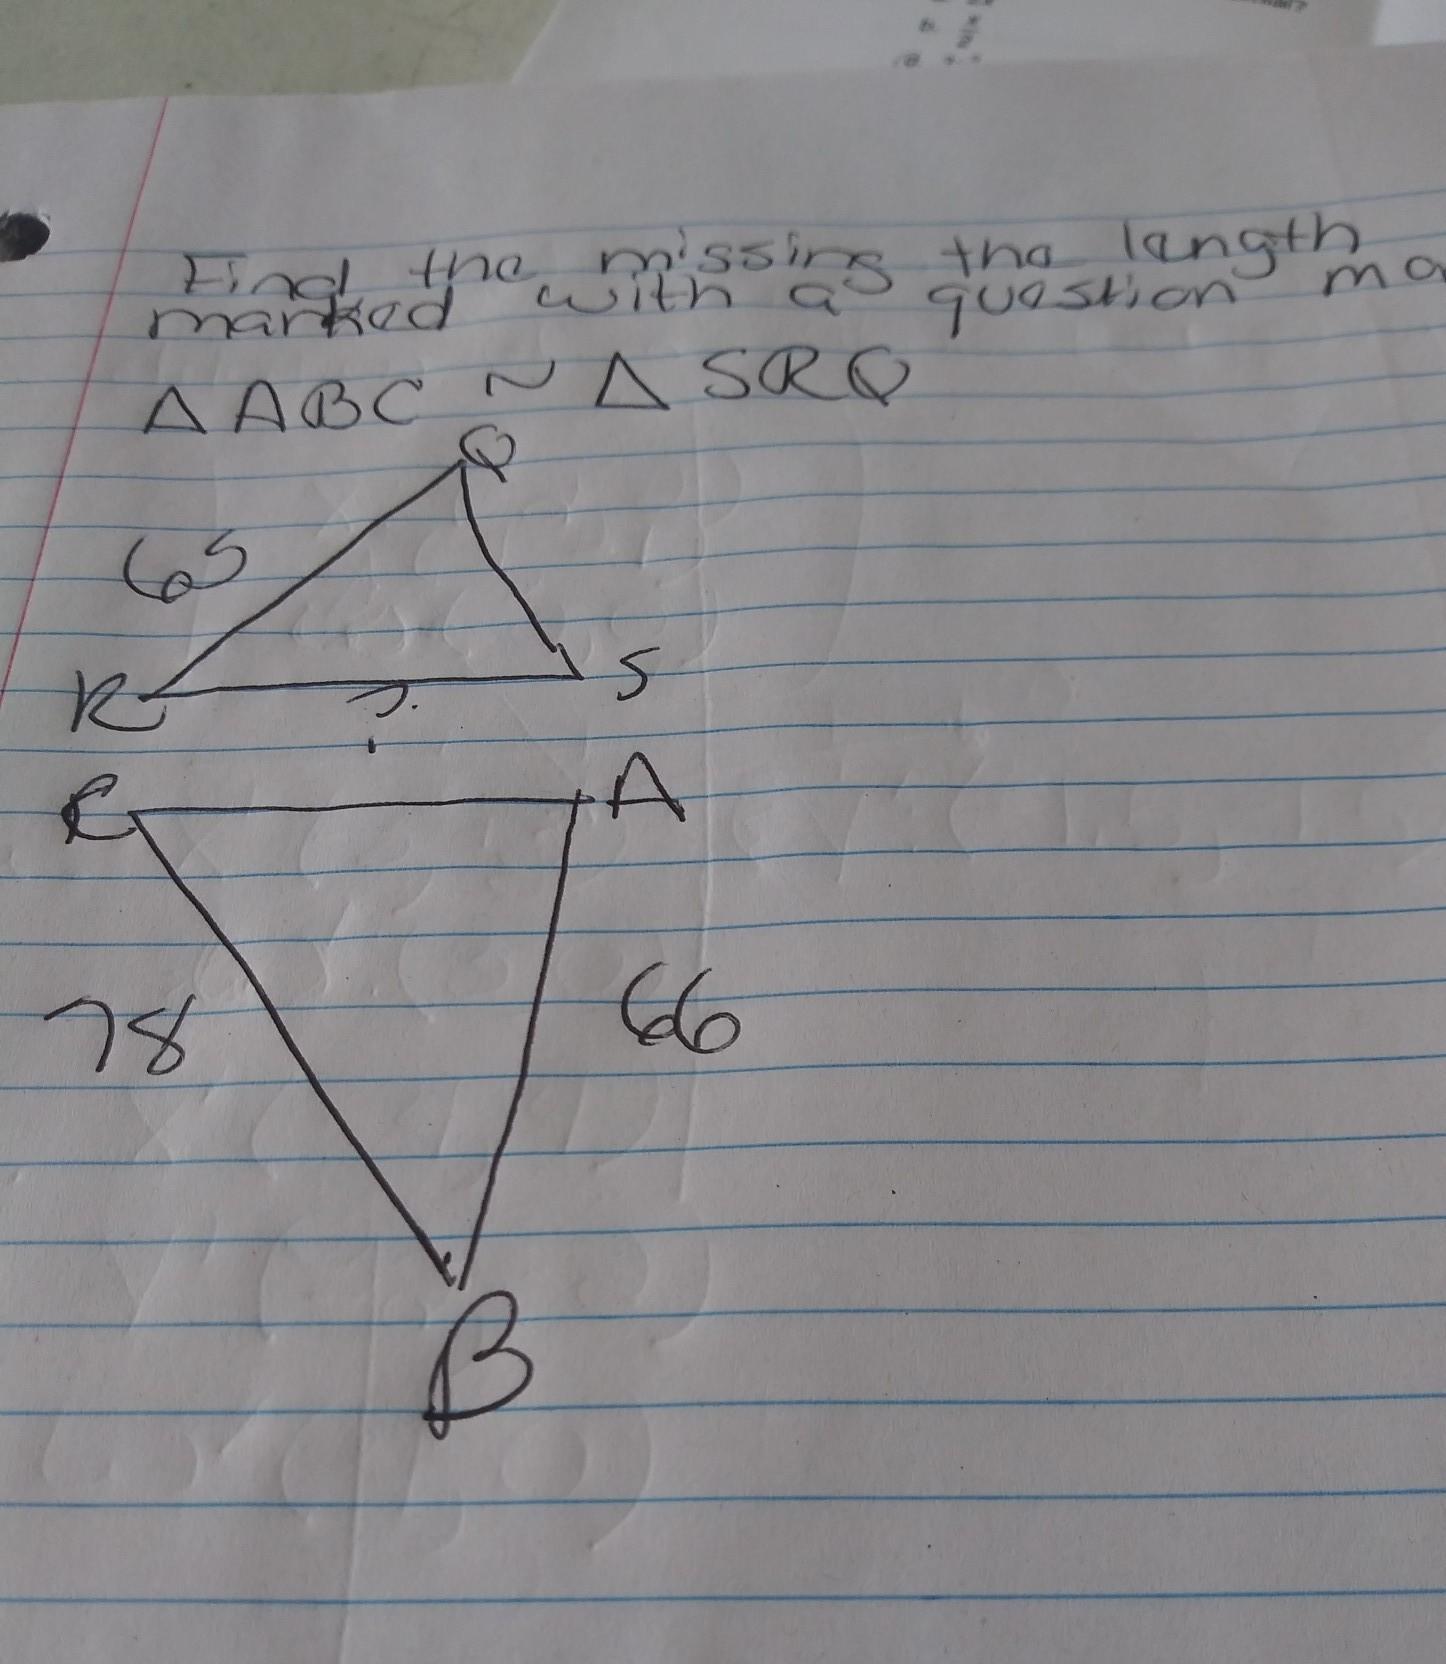 Find the missing the length
marked with a question
△ ABC ~ △ SRQ
Q
65
R
S
?
C
A
78
66
B